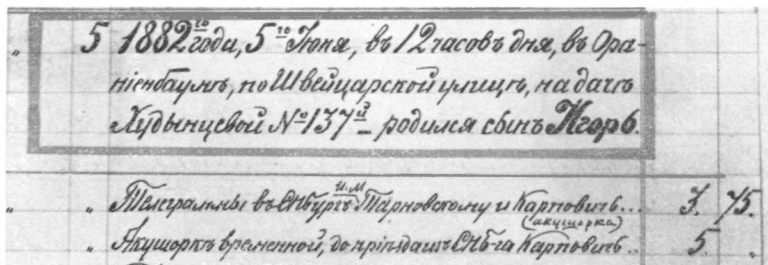 „ 5 1882го года, 5го Июня, въ 12 часовъ дня, въ Ора-
ніенбаумѣ, по Швейцарской улицѣ, на дачѣ
Худынцевой №137й родился сынъ Игорь.
„ „ Телеграммы въ СПбургъ И.М. Тарновскому и Карповичъ... 3. 75.
(акушорка)
„ Акушоркѣ временной, до пріѣзда изъ СПБ-га Карповичъ.. 5. „